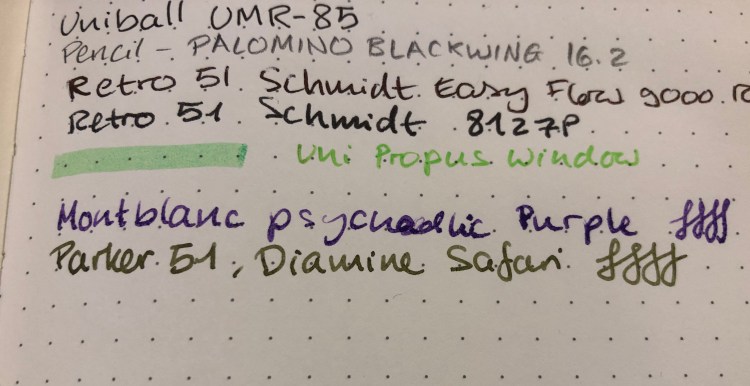 Uniball UMR-85
Pencil - PALOMINO BLACKWING 16.2
Retro 51. Schmidt Easy Flow 9000.
Retro 51. Schmidt 8127P.
Uni Propus Window
Montblanc psychadelic Purple
Parker 51, Diamine Safari